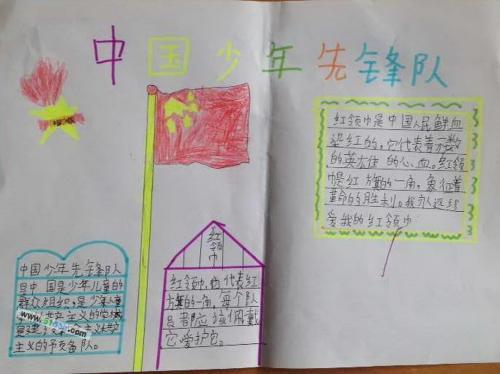 中国少年先锋队
红领巾是中国人民鲜血
染红的,它代表着无数
的英雄 的心血。红领
红旗的一角,象征着
革命的胜利。我
爱我的红领巾
红领巾
红领巾,它代表红
旗的一角,每个队
员都应该佩戴
它,爱护它。
中国少年先锋队
是中国是少年儿童的
群众组织,是少年儿童
主义的
主义
主义的预备队。